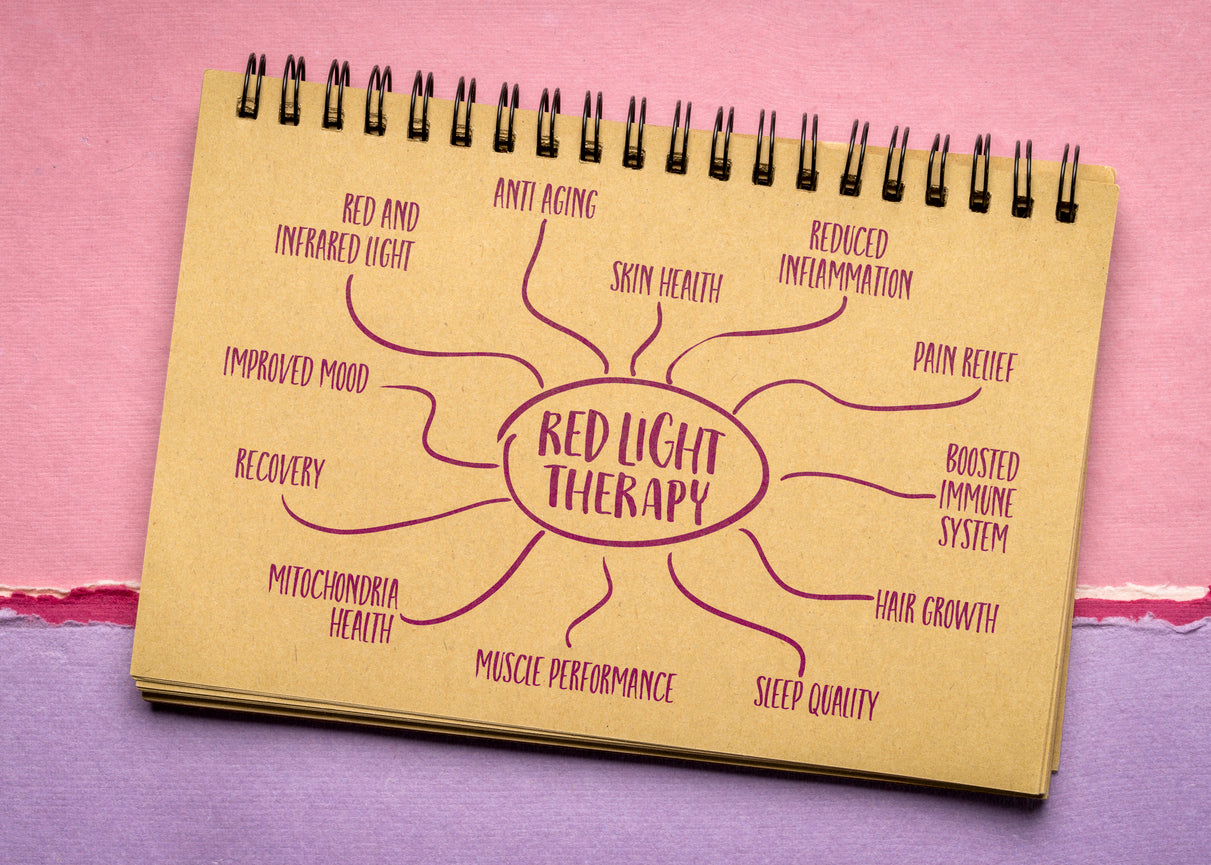 ANTI AGING
RED AND
INFRARED LIGHT
SKIN HEALTH
REDUCED
INFLAMMATION
PAIN RELIEF
IMPROVED MOOD
RED LIGHT
THERAPY
RECOVERY
BOOSTED
IMMUNE
SYSTEM
MITOCHONDRIA
HEALTH
HAIR GROWTH
MUSCLE PERFORMANCE
SLEEP QUALITY